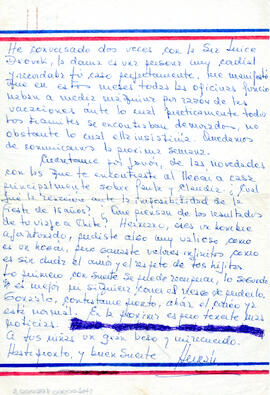 He conversado dos veces con la Sra. Luisa
la dama es una persona muy cordial
y recordaba tú caso perfectamente, me manifestó
que en estos meses todas las oficinas
a medias por razón de las
vacaciones ante lo cual practicamente todos
los tramites se encontraban demorados, no
obstante lo cual ella insistiría. Quedamos
de comunicarnos la proxima semana.
Cuentame por favor, de las novedades
con las que te encontraste al llegar a casa
principalmente sobre Paula y Claudia: ¿Cual
fué la reacción ante la imposibilidad de la
fiesta de 15 años? ¿Que piensan de los resultados
de tu viaje a Chile? Hermano, eres un hombre
afortunado, pudiste algo muy valioso como
es un hogar, pero ganaste valores infinitos como
es sin duda el amor y el respeto de tus hijitas
Lo primero con suerte se puede recuperar, lo segundo
es mejor ni siquiera correr el riesgo de perderlo.
Gonzalo, contestame pronto, abür el correo y
esté normal. En la próxima espero tenerte más
noticias.
A tus niñas un gran beso y mi recuerdo.
Hasta pronto, y buena suerte Hernán